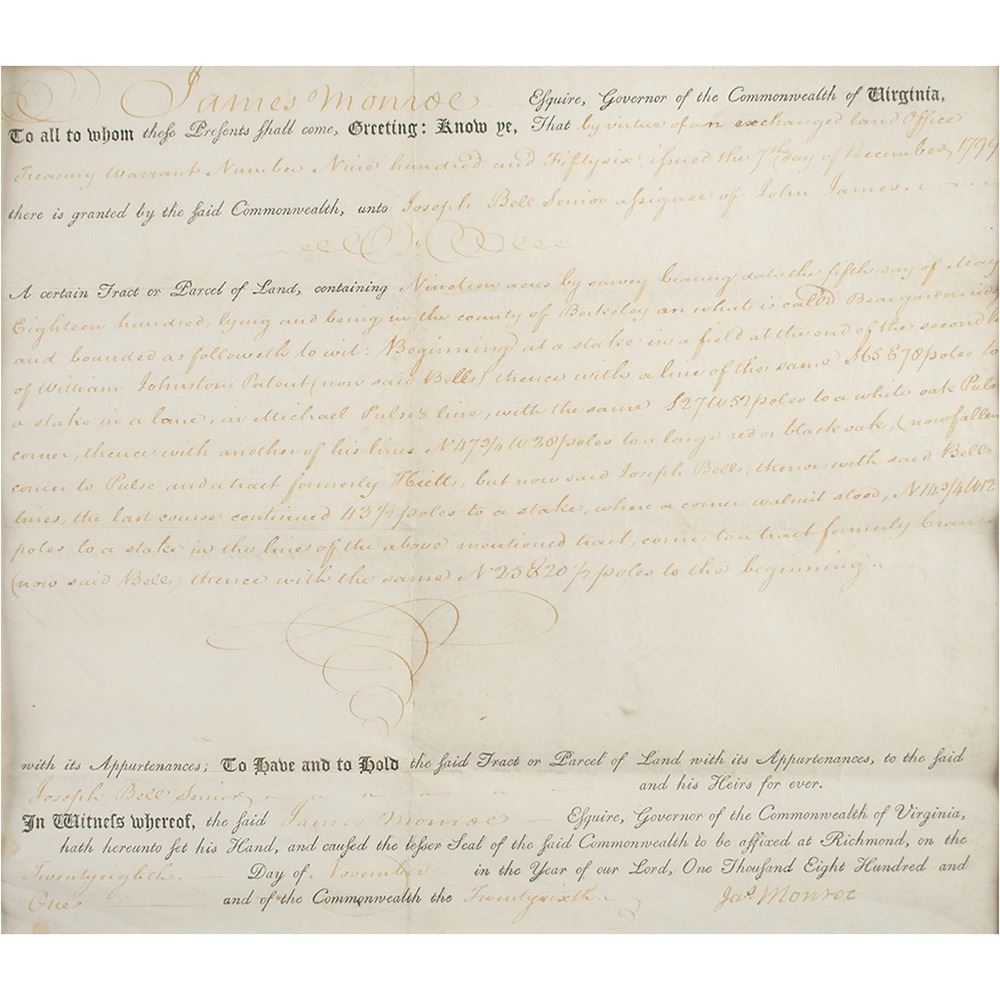 James Monroe Esquire, Governor of the Commonwealth of Virginia,
To all to whom these Presents shall come, Greeting: Know ye, That by virtue of an exchanged land Office
Treasury Warrant Number Nine hundred and Fiftysix, issued the 7th day of December 1799
there is granted by the said Commonwealth, unto Joseph Bell Senior assignee of John James.
A certain Tract or Parcel of Land, containing Nineteen acres by survey bearing date the fifth day of May
Eighteen hundred, lying and being in the county of Berkeley on what is called Beargarden ridge
and bounded as followeth to wit: Beginning at a stake in a field at the end of the second
of William Johnstons Patent (now said Bells) thence with a line of the same S65E78 poles to
a stake in a lane, in Michael Pulse's line, with the same S27W52 poles to a white oak Pulse
corner, thence with another of his lines N47 3/4W28 poles to a large red or black oak, (now fallen
corner to Pulse and a tract formerly Hiett, but now said Joseph Bells, thence with said Bells
lines, the last course continued 43 1/2 poles to a stake, where a corner walnut stood, N14 3/4W12
poles to a stake in the line of the above mentioned tract, corner to a tract formerly
(now said Bell) thence with the same N25E20 1/2 poles to the beginning.
with its Appurtenances; To Have and to Hold the said Tract or Parcel of Land with its Appurtenances, to the said
Joseph Bell Senior and his Heirs for ever.
In Witness whereof, the said James Monroe Esquire, Governor of the Commonwealth of Virginia,
hath hereunto set his Hand, and caused the lesser Seal of the said Commonwealth to be affixed at Richmond, on the
Twentyeighth Day of November in the Year of our Lord, One Thousand Eight Hundred and
One and of the Commonwealth the Twentysixth.
Jas. Monroe